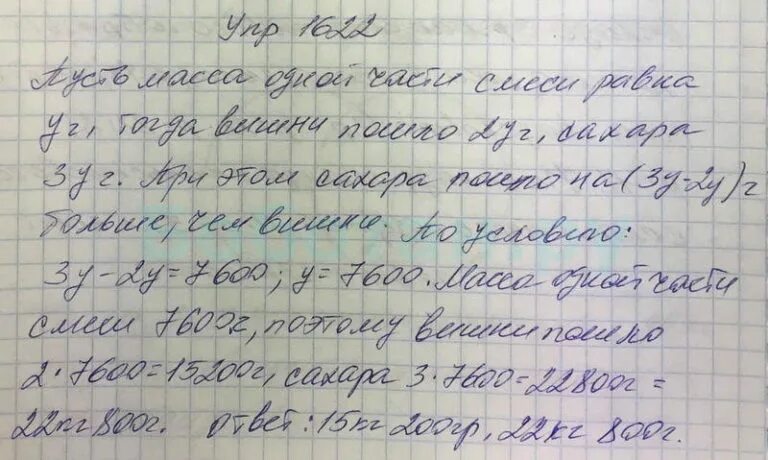 Упр 1622
Пусть масса одной части смеси равна
y г, тогда вишни пошло 2y г, сахара
3y г. При этом сахара пошло на (3y-2y) г
больше, чем вишни. По условию:
3y - 2y = 7600; y = 7600. Масса одной части
смеси 7600г, поэтому вишни пошло
2 · 7600 = 15200г, сахара 3 · 7600 = 22800г =
22кг 800г. Ответ: 15кг 200гр, 22кг 800г.